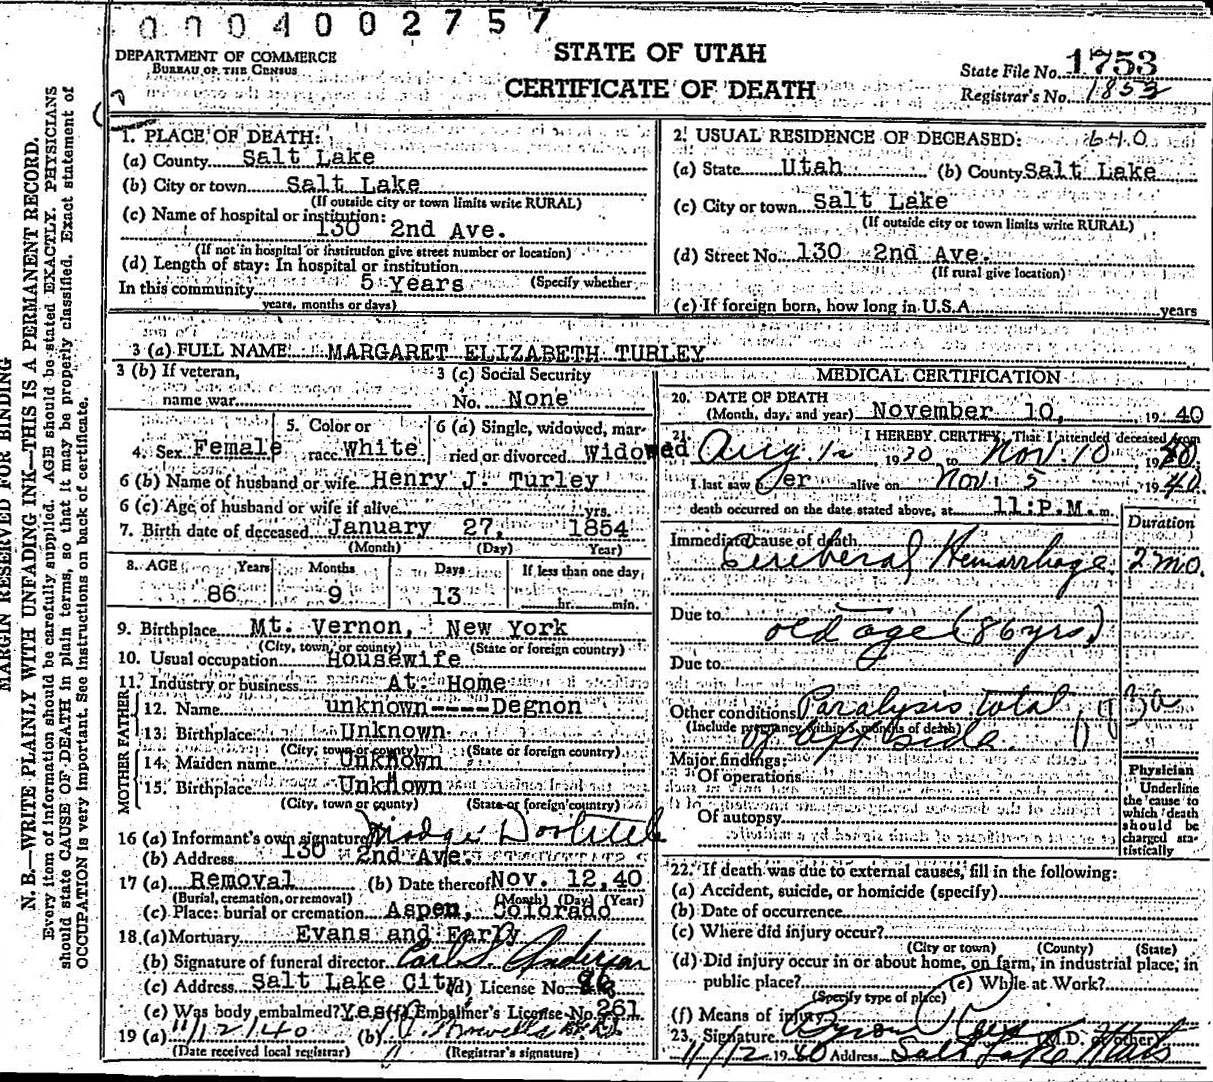 0004002757
DEPARTMENT OF COMMERCE
BUREAU OF THE CENSUS
STATE OF UTAH
CERTIFICATE OF DEATH
State File No. 1753
Registrar's No. 1853
MARGIN RESERVED FOR BINDING
N. B.—WRITE PLAINLY WITH UNFADING INK—THIS IS A PERMANENT RECORD.
Every item of information should be carefully supplied. AGE should be stated EXACTLY. PHYSICIANS
should state CAUSE OF DEATH in plain terms, so that it may be properly classified. Exact statement of
OCCUPATION is very important. See instructions on back of certificate.
1. PLACE OF DEATH:
(a) County Salt Lake
(b) City or town Salt Lake
(If outside city or town limits write RURAL)
(c) Name of hospital or institution:
130 2nd Ave.
(If not in hospital or institution give street number or location)
(d) Length of stay: In hospital or institution
(Specify whether
In this community 5 Years
years, months or days)
2. USUAL RESIDENCE OF DECEASED: 640
(a) State Utah (b) County Salt Lake
(c) City or town Salt Lake
(If outside city or town limits write RURAL)
(d) Street No. 130 2nd Ave.
(If rural give location)
(e) If foreign born, how long in U.S.A. years
3 (a) FULL NAME MARGARET ELIZABETH TURLEY
3 (b) If veteran,
name war
3 (c) Social Security
No. None
4. Sex Female
5. Color or
race White
6 (a) Single, widowed, mar-
ried or divorced Widowed
6 (b) Name of husband or wife Henry J. Turley
6 (c) Age of husband or wife if alive yrs.
7. Birth date of deceased January 27, 1854
(Month) (Day) Year)
8. AGE Years Months Days If less than one day;
86 9 13 hr. min.
9. Birthplace Mt. Vernon, New York
(City, town, or county) (State or foreign country)
10. Usual occupation Housewife
11. Industry or business At Home
FATHER
12. Name unknown----Degnon
13. Birthplace Unknown
(City, town or county) (State or foreign country)
MOTHER
14. Maiden name Unknown
15. Birthplace Unknown
(City, town or county) (State or foreign country)
16 (a) Informant's own signature Madge
(b) Address 130 2nd Ave.
17 (a) Removal (b) Date thereof Nov. 12,40
(Burial, cremation, or removal) (Month) (Day) (Year)
(c) Place: burial or cremation Aspen, Colorado
18. (a) Mortuary Evans and Early
(b) Signature of funeral director Carl S Anderson
(c) Address Salt Lake City (d) License No.
(e) Was body embalmed? Yes (f) Embalmer's License No. 261
19 (a) 11/12/40 (b)
(Date received local registrar) (Registrar's signature)
MEDICAL CERTIFICATION
20. DATE OF DEATH
(Month, day, and year) November 10, 19 40
21. I HEREBY CERTIFY, That I attended deceased from
Aug. 19 to Nov. 10 19 40
I last saw her alive on Nov. 5 19 40
death occurred on the date stated above, at 11:P.M. m.
Duration
Immediate cause of death
Cereberal Hemorrhage 2 mo.
Due to
old age (86 yrs.)
Due to
Other conditions Paralysis total
(Include pregnancy within 3 months of death)
of side.
Major findings:
Of operations
Of autopsy
Physician
Underline
the cause to
which death
should be
charged sta-
tistically
22. If death was due to external causes, fill in the following:
(a) Accident, suicide, or homicide (specify)
(b) Date of occurrence
(c) Where did injury occur?
(City or town) (County) (State)
(d) Did injury occur in or about home, on farm, in industrial place, in
public place? (e) While at Work?
(Specify type of place)
(f) Means of injury
23. Signature Byron (M.D. or other)
11/12 19 40 Address Salt Lake Utah